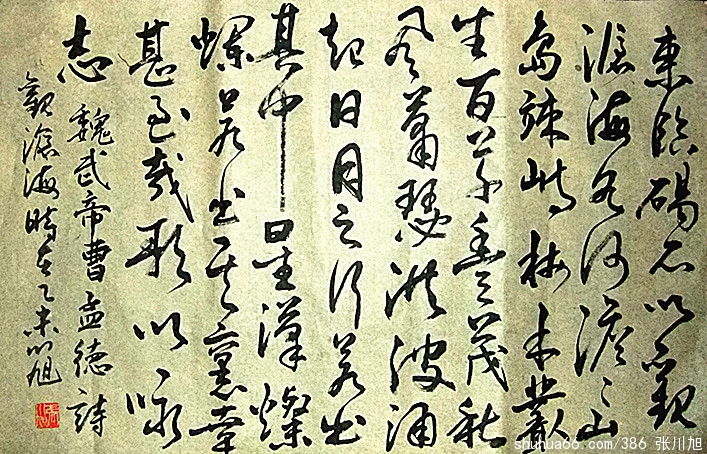 東臨碣石以觀
滄海水何澹〻山
島竦峙樹木叢
生百草豐茂秋
風蕭瑟洪波涌
起日月之行若出
其中星漢燦
爛若出其裏幸
甚至哉歌以詠
志 魏武帝曹孟德詩
觀滄海時在乙未川旭
shuhua66.com/386 张川旭